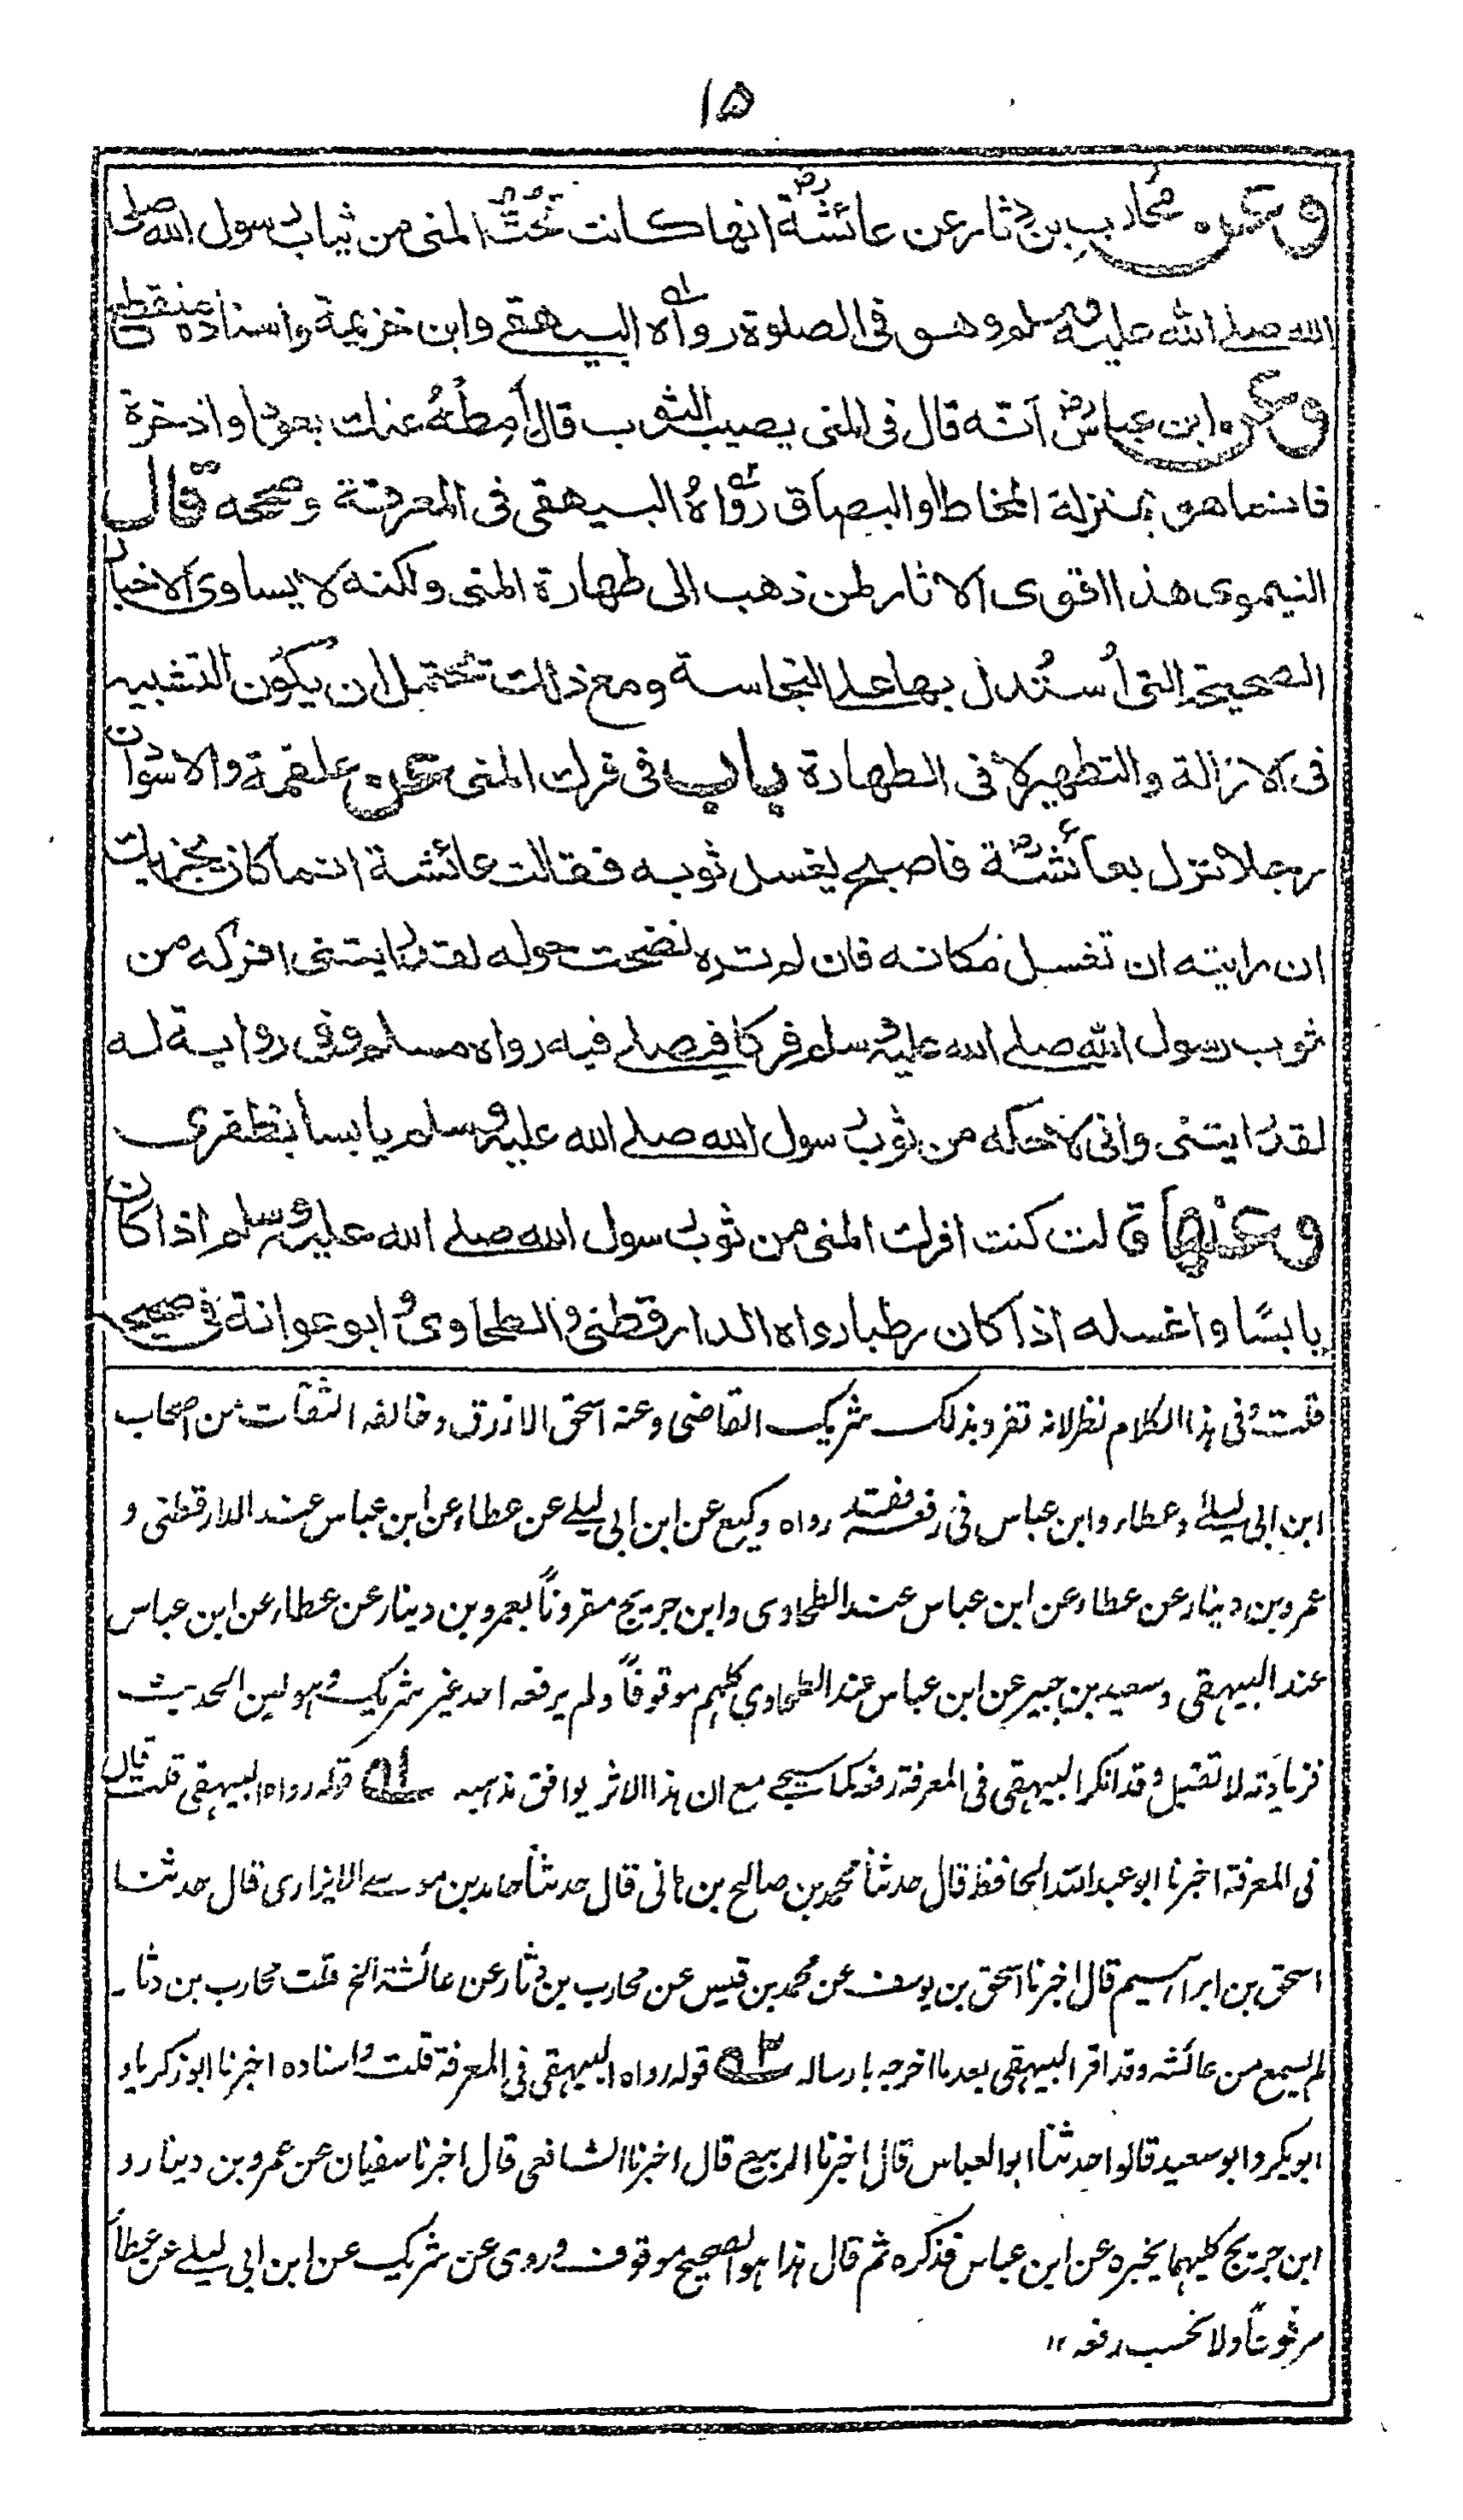 ١٥
وعن محارب بن دثار عن عائشة رض انها كانت تحت المنى من ثياب رسول الله صلى
الله صلى الله عليه وسلم وهو فى الصلوة رواه البيهقى وابن خزيمة واسناده منقطع
وعن ابن عباس رض انه قال فى المنى يصيب الثوب قال أمِطْهُ عنك بعود او اذخرة
فانما هو بمنزلة المخاط او البصاق رواهُ البيهقى فى المعرفة وصححه قال
النيموى هذا اقوى الاثار لمن ذهب الى طهارة المنى ولكنه لا يساوى الاخبار
الصحيحة التى اُستُدل بها على النجاسة ومع ذلك تحتمل ان يكون التشبيه
فى الازالة والتطهير لا فى الطهارة باب فى فرك المنى عن علقمة والاسود ان
رجلا نزل بعائشة رض فاصبح يغسل ثوبه فقالت عائشة انما كان يجزيك
ان رايته ان تغسل مكانه فان لم تره نضحت حوله لقد رايتنى افركه من
ثوب رسول الله صلى الله عليه وسلم فركا فيصلى فيه رواه مسلم وفى رواية له
لقد رايتنى وانى لاحكه من ثوب رسول الله صلى الله عليه وسلم يابسا بظفرى
وعنها قالت كنت افرك المنى من ثوب رسول الله صلى الله عليه وسلم اذا كان
يابسًا واغسله اذا كان رطبا رواه الدارقطنى والطحاوى وابو عوانة فى صحيحه
قلت وفى هذا الكلام نظر لانه تفرد بذلك شريك القاضى وعنه اسحق الازرق وخالفه الثقات من اصحاب
ابن ابى ليلى وعطاء وابن عباس فى رفعه فقد رواه وكيع عن ابن ابى ليلى عن عطاء عن ابن عباس عند الدارقطنى و
عمرو بن دينار عن عطاء عن ابن عباس عند الطحاوى وابن جريج مقروناً بعمرو بن دينار عن عطاء عن ابن عباس
عند البيهقى وسعيد بن جبير عن ابن عباس عند الطحاوى كلهم موقوفاً ولم يرفعه احد غير شريك وهو لين الحديث
فزيادته لا تقبل وقد انكر البيهقى فى المعرفة رفعه كما سيجىء مع ان هذا الاثر يوافق مذهبه ١ه قوله رواه البيهقى قلت قال
فى المعرفة اخبرنا ابو عبد الله الحافظ قال حدثنا محمد بن صالح بن هانى قال حدثنا حامد بن موسى الابزارى قال حدثنا
اسحق بن ابراهيم قال اخبرنا اسحق بن يوسف عن محمد بن قيس عن محارب بن دثار عن عائشة الخ قلت محارب بن دثار
لم يسمع من عائشه وقد اقر البيهقى بعد ما اخرجه بارساله ٢ه قوله رواه البيهقى فى المعرفة قلت واسناده اخبرنا ابو زكريا و
ابو بكر وابو سعيد قالوا حدثنا ابو العباس قال اخبرنا الربيع قال اخبرنا الشافعى قال اخبرنا سفيان عن عمرو بن دينار و
ابن جريج كليهما يخبره عن ابن عباس فذكره ثم قال هذا هو الصحيح موقوف وروى عن شريك عن ابن ابى ليلى عن عطاء
مرفوعاً ولا نحسب رفعه ١٢